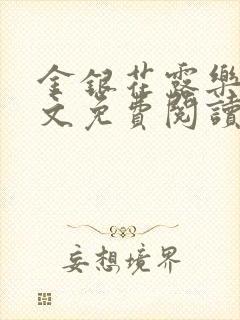 金銀花露樂
文免費閱讀
妄想境界